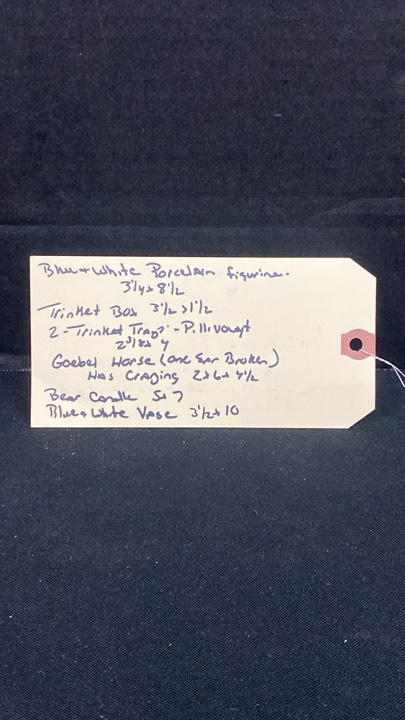 Blue + White Porcelain figurine.
3 1/4 x 8 1/2
Trinket Box 3 1/2 x 1 1/2
2 - Trinket Trays - Pillivuyt
2 3/8 x 4
Goebel Horse (one Ear Broken)
Has Crazing 2 x 6 x 4 1/2
Bear Candle 5 x 7
Blue + White Vase 3 1/2 x 10